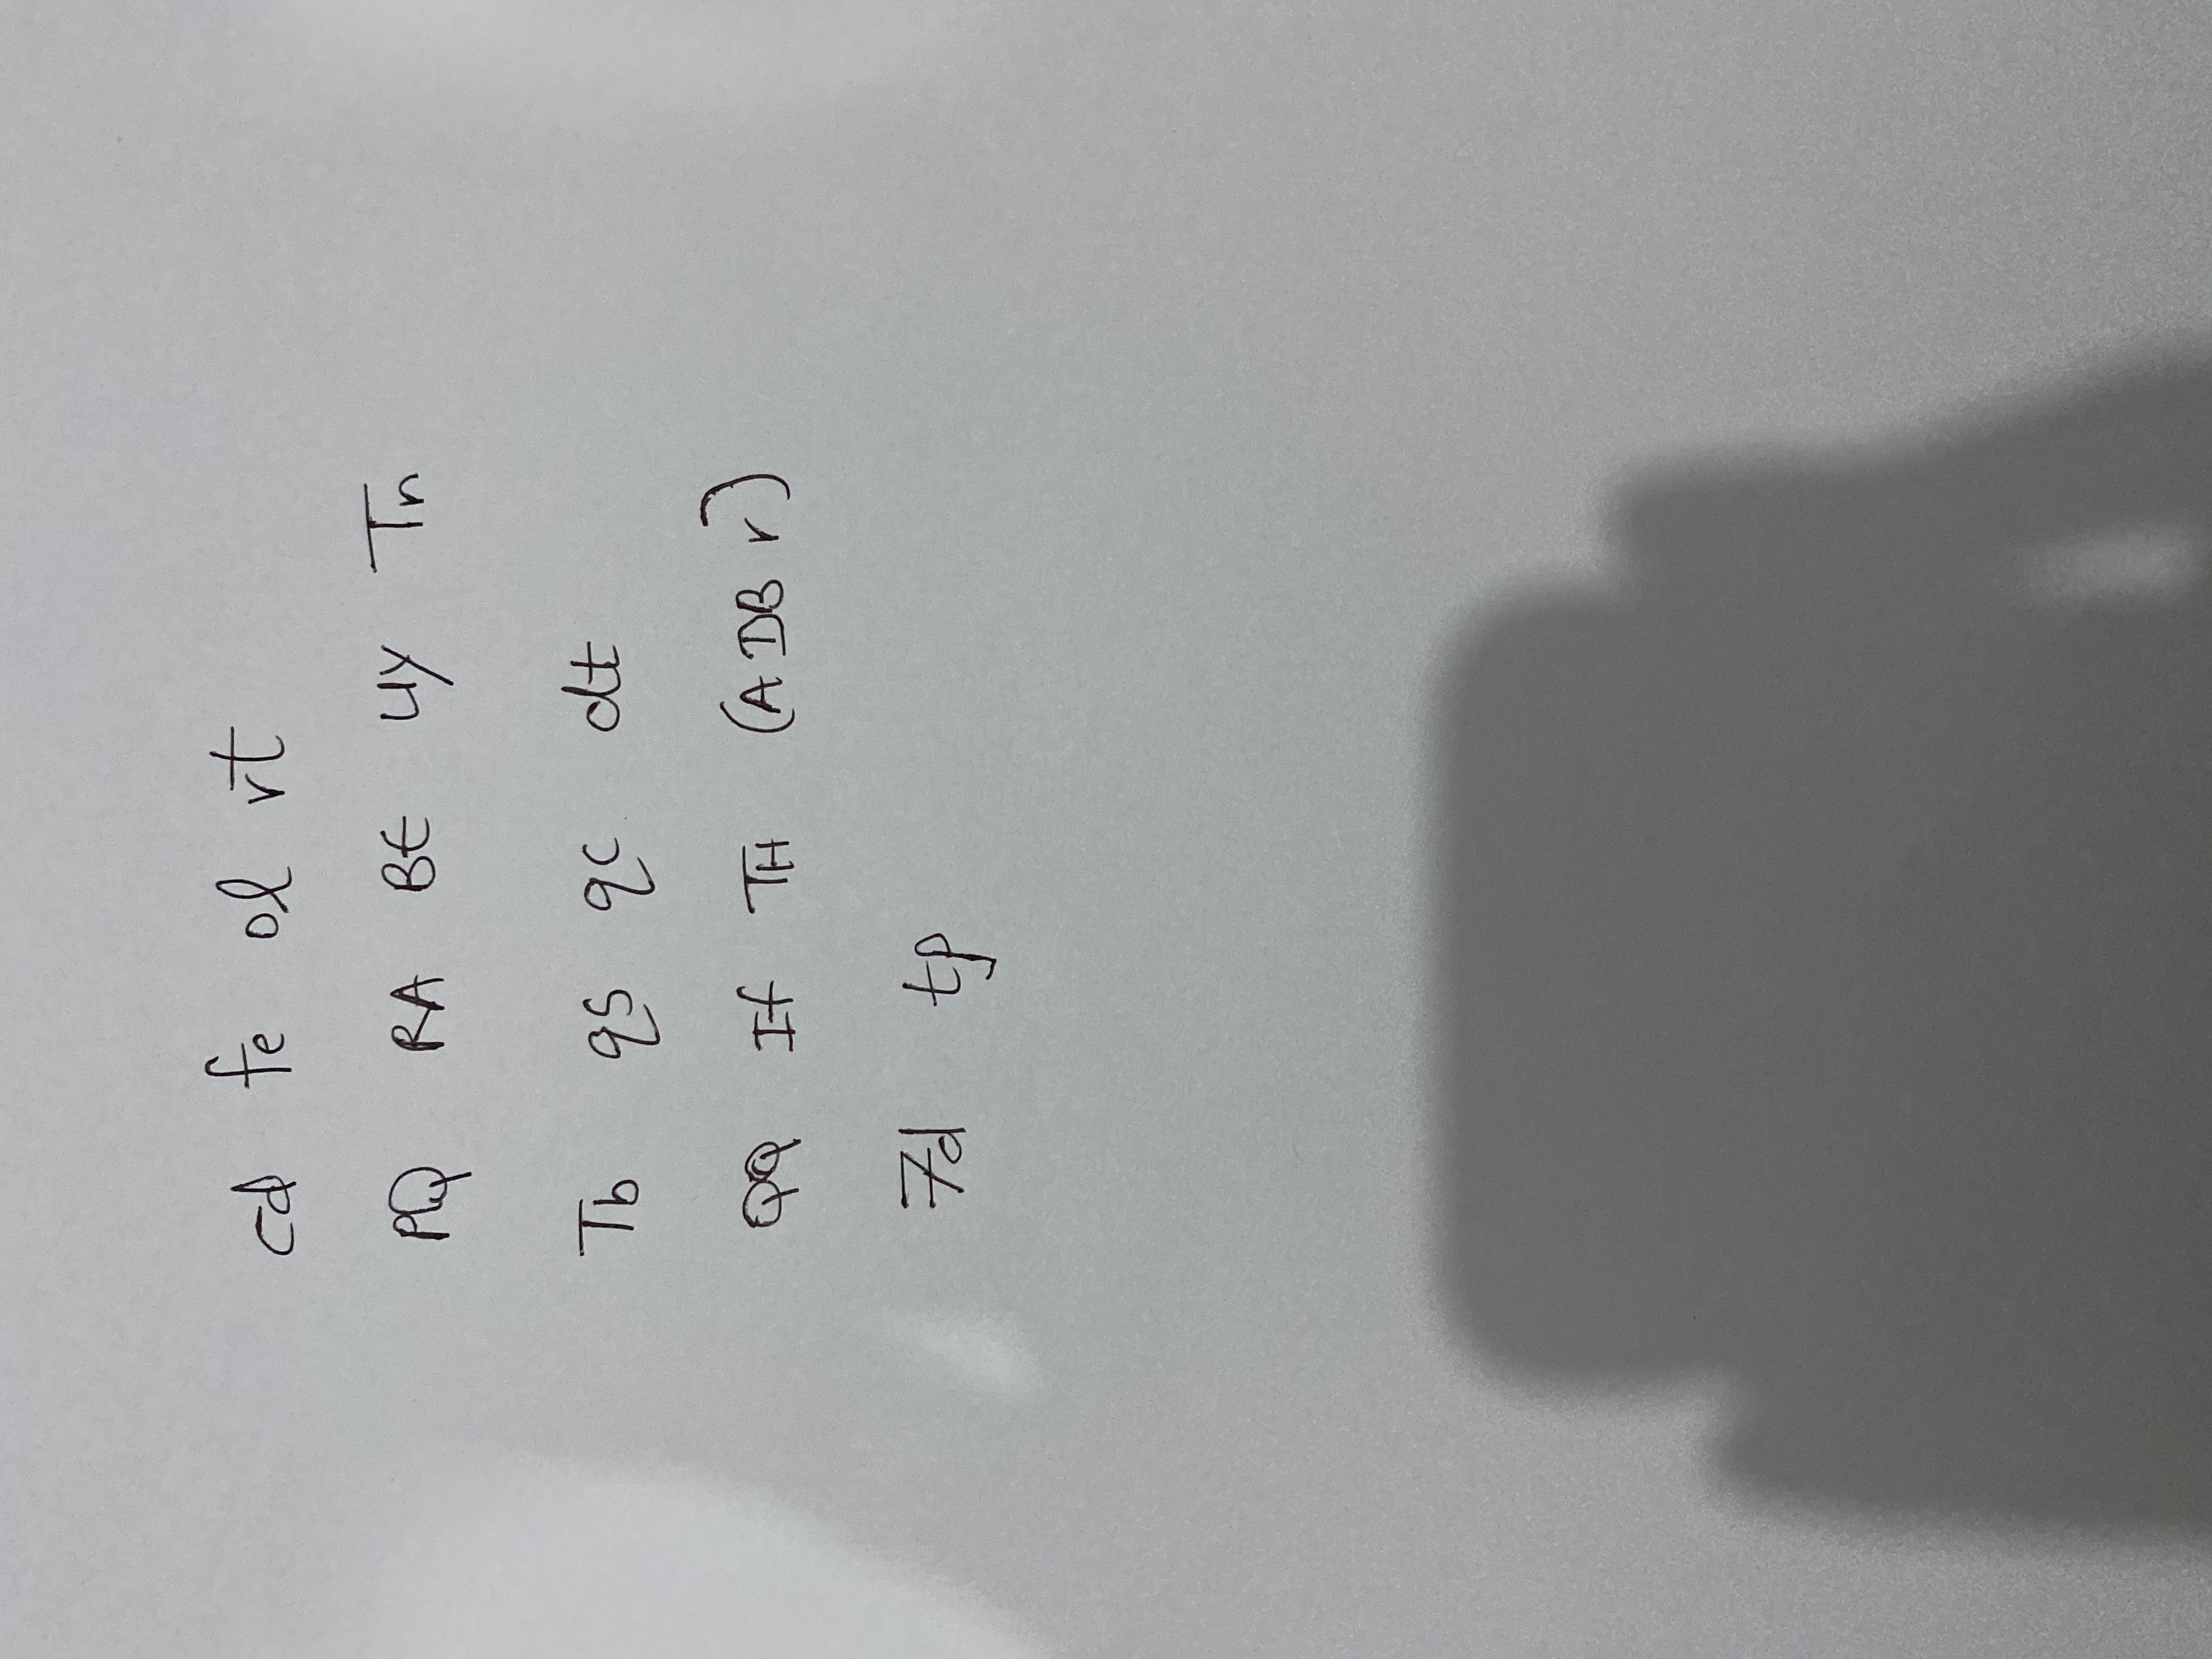 cd fe ol rt
PQ RA BE UY Tn
Tb qs qc dt
QQ If TH (A DB r)
7d tp